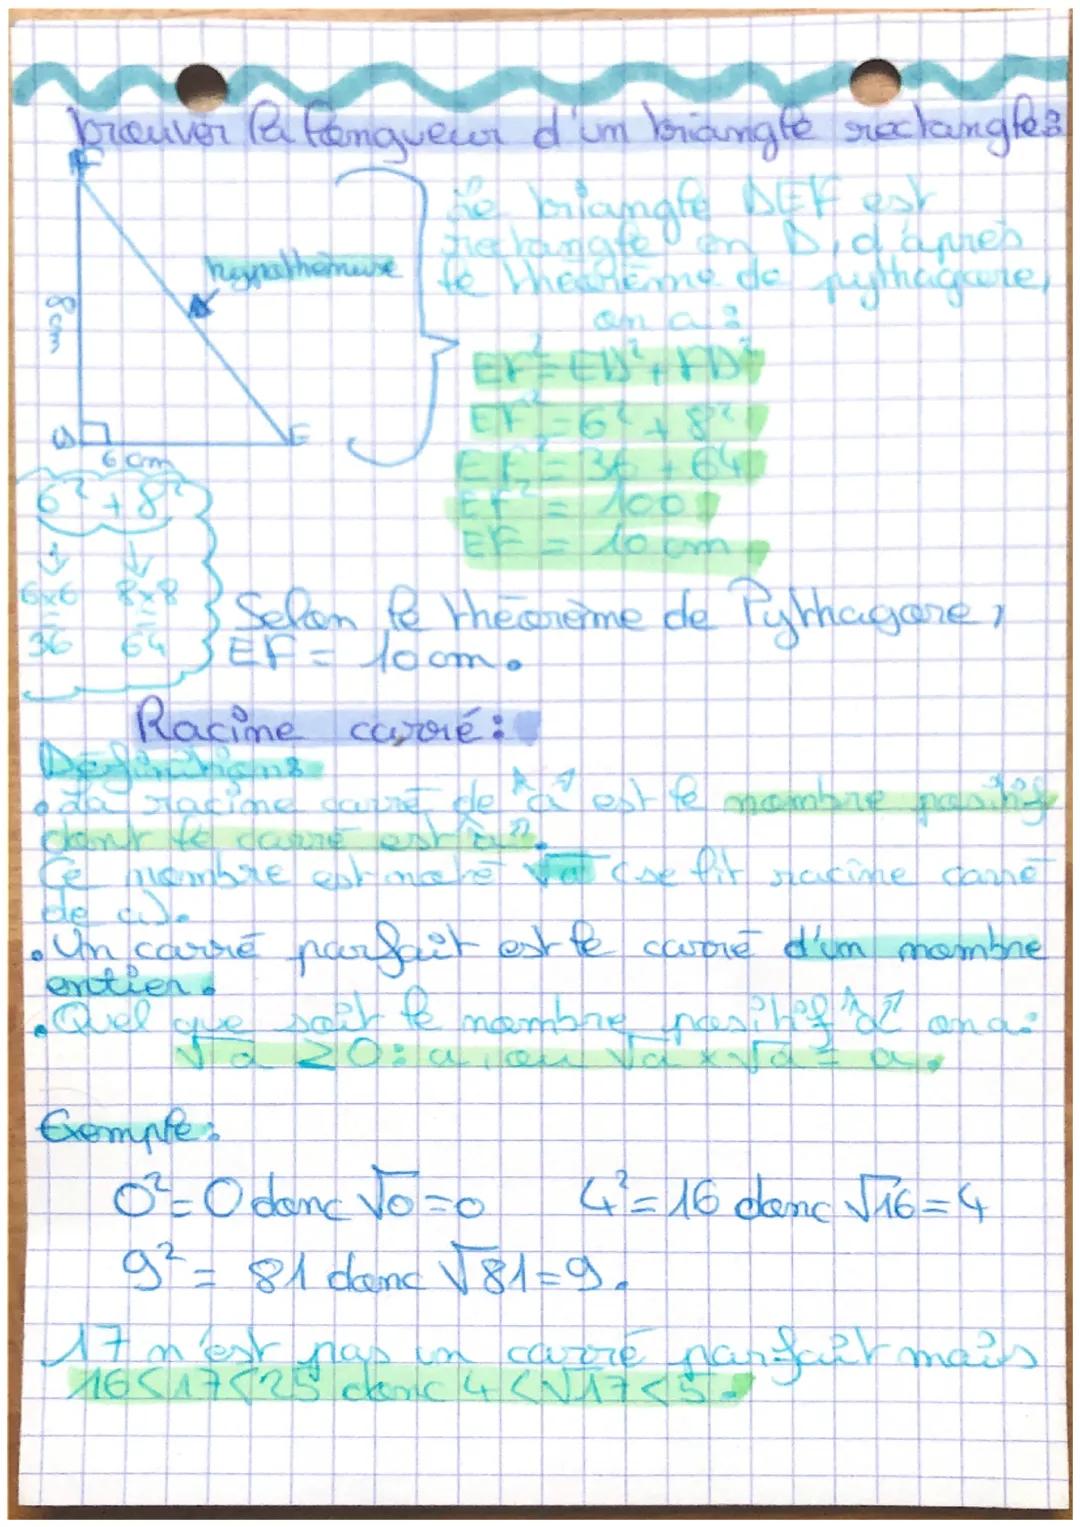 prouver la longueur d'un triangle rectangle:
F
Le triangle DEF est
rectangle en D, d'après
le théorème de pythagore,
on a :
hypothénuse
8 cm
EF² = ED² + FD²
EF² = 6² + 8²
EF² = 36 + 64
EF² = 100
EF = 10 cm
D
E
6 cm
6² + 8²
6x6 8x8
= =
36 64
Selon le théorème de Pythagore,
EF = 10 cm.
Racine carré :
Définitions
• La racine carré de "a" est le nombre positif
dont le carré est "a".
Ce nombre est noté √a (se lit racine carré
de a).
• Un carré parfait est le carré d'un nombre
entier.
• Quel que soit le nombre positif "a" on a:
√a ≥ 0: a, ou √a x √a = a.
Exemple:
0² = 0 donc √0 = 0 4² = 16 donc √16 = 4
9² = 81 donc √81 = 9.
17 n'est pas un carré parfait mais
16 < 17 < 25 donc 4 < √17 < 5.